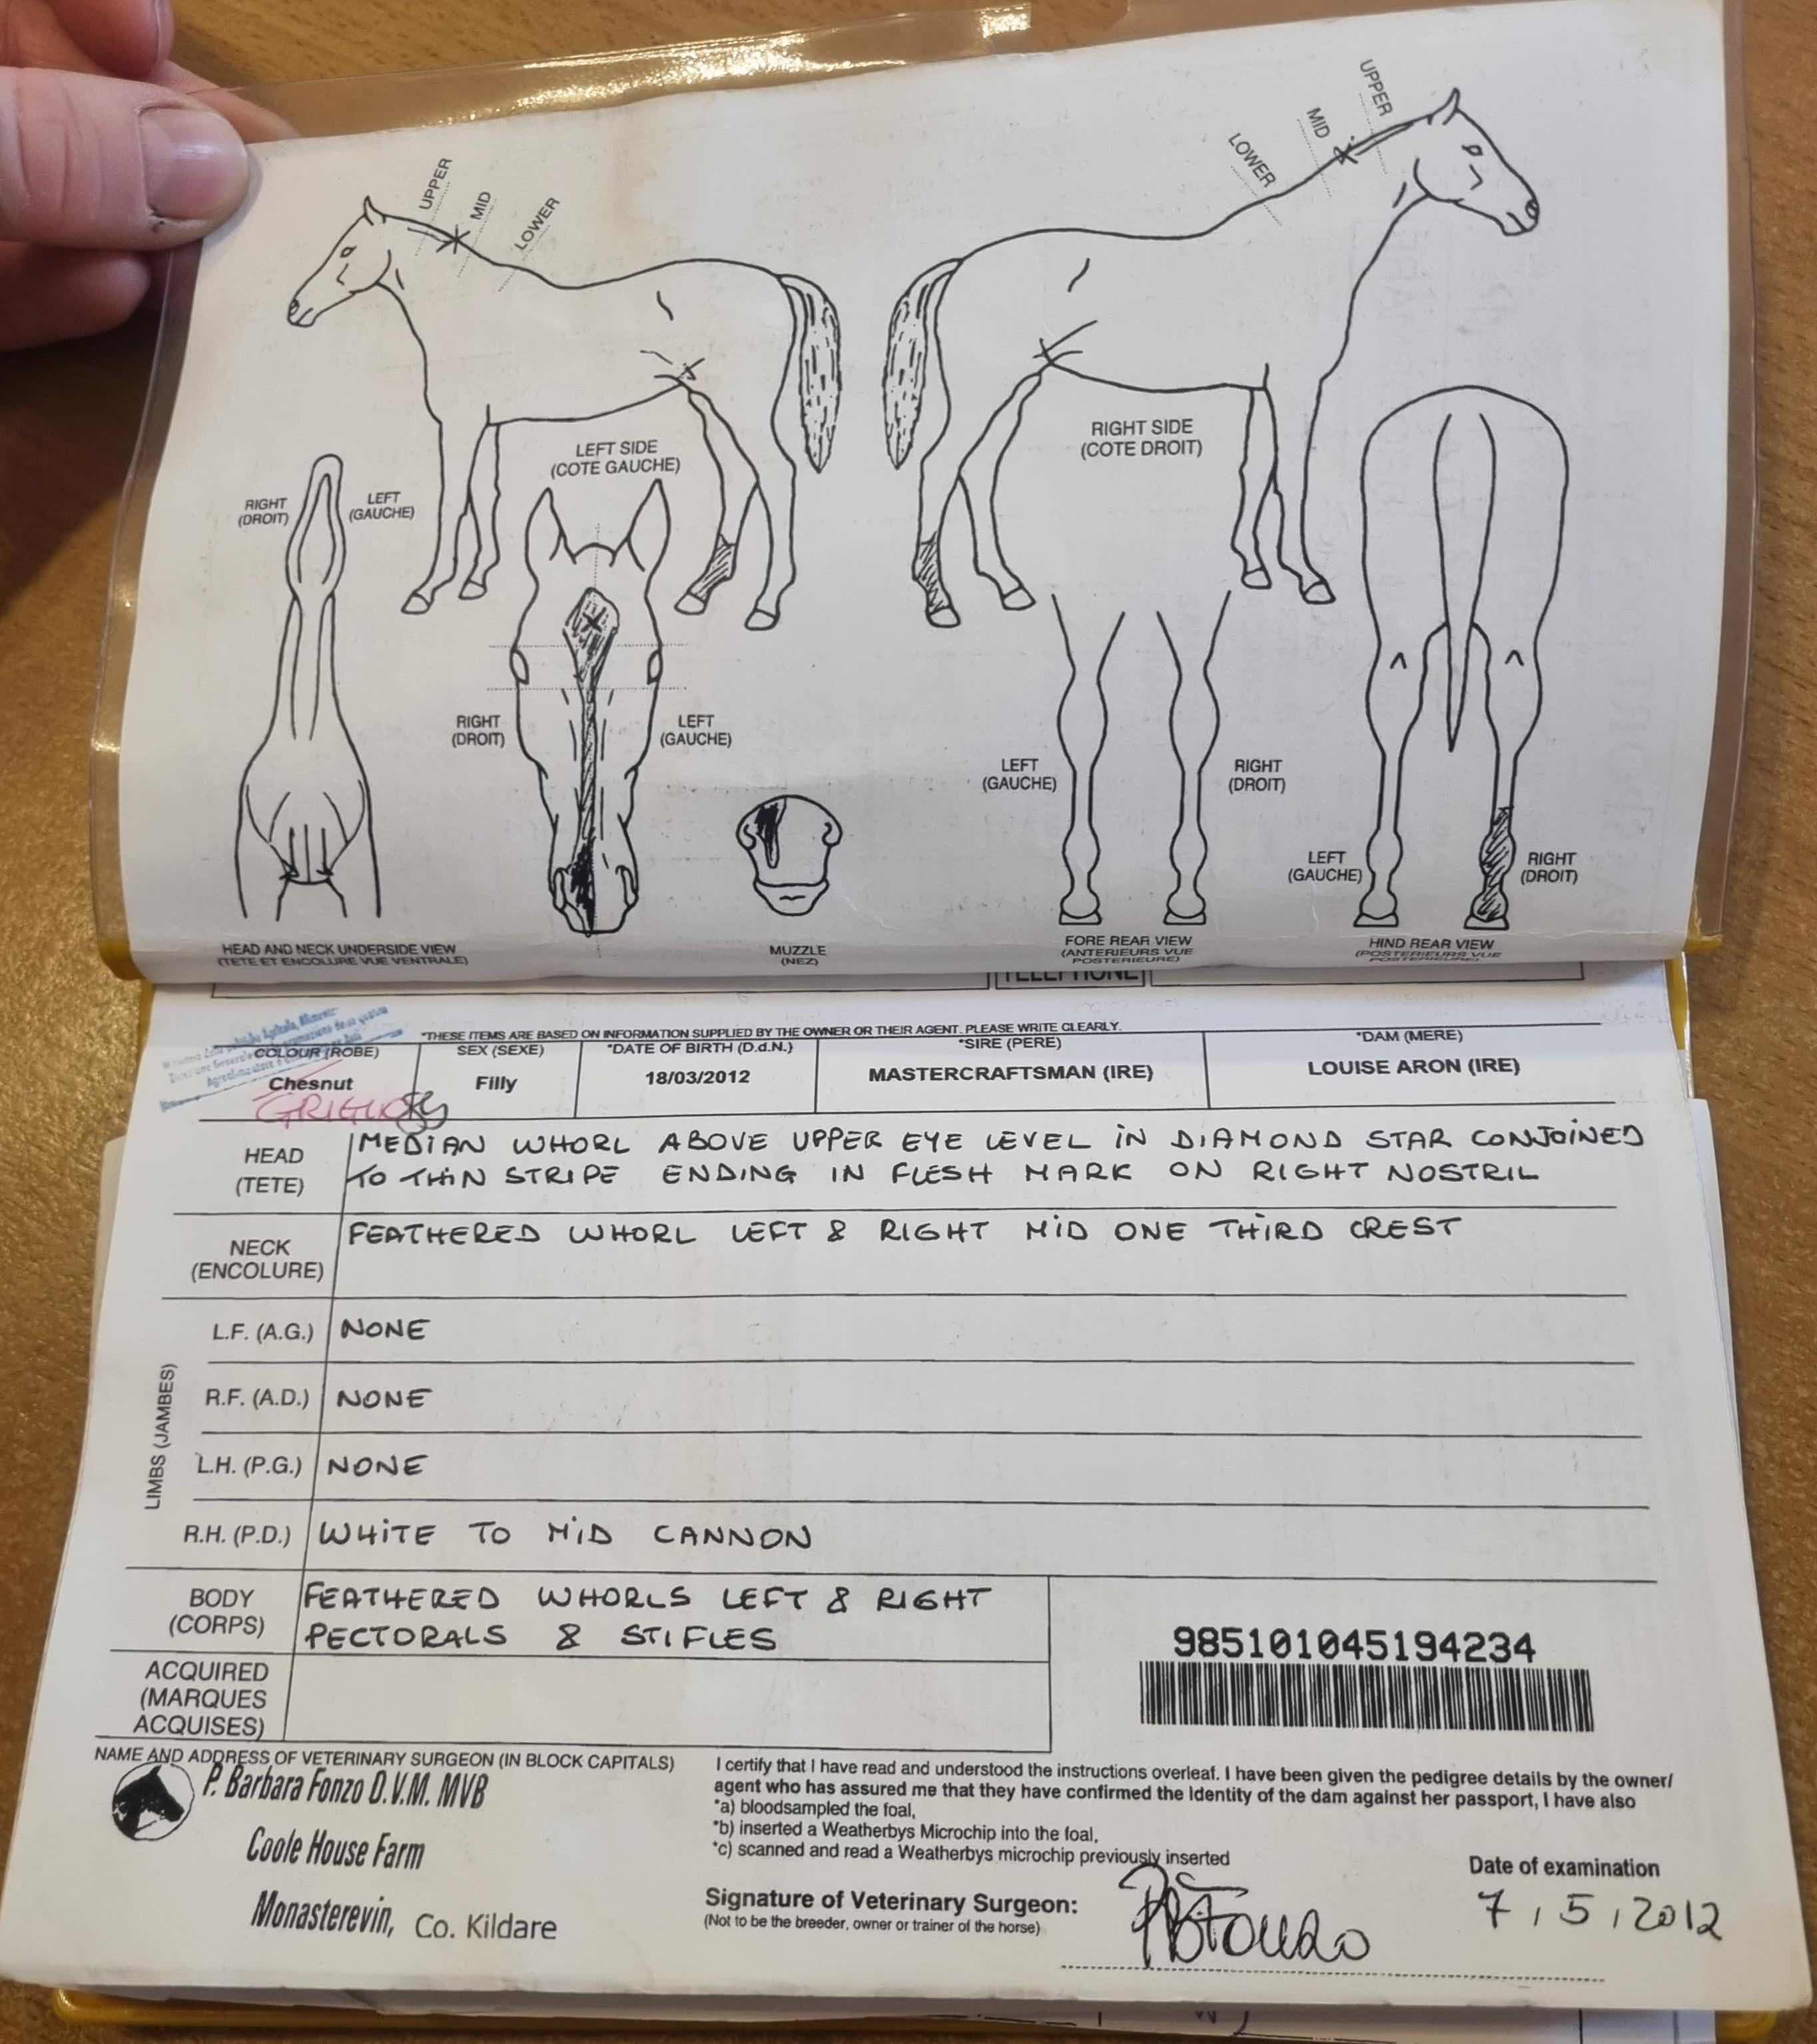 UPPER
MID
LOWER
LOWER
MID
UPPER
LEFT SIDE
(COTE GAUCHE)
RIGHT SIDE
(COTE DROIT)
RIGHT
(DROIT)
LEFT
(GAUCHE)
RIGHT
(DROIT)
LEFT
(GAUCHE)
LEFT
(GAUCHE)
RIGHT
(DROIT)
LEFT
(GAUCHE)
RIGHT
(DROIT)
HEAD AND NECK UNDERSIDE VIEW
(TETE ET ENCOLURE VUE VENTRALE)
MUZZLE
(NEZ)
FORE REAR VIEW
(ANTERIEURS VUE
POSTERIEURE)
HIND REAR VIEW
(POSTERIEURS VUE
POSTERIEURE)
TELEPHONE
*THESE ITEMS ARE BASED ON INFORMATION SUPPLIED BY THE OWNER OR THEIR AGENT. PLEASE WRITE CLEARLY.
COLOUR (ROBE)
Chesnut
GRIGIO
SEX (SEXE)
Filly
*DATE OF BIRTH (D.d.N.)
18/03/2012
*SIRE (PERE)
MASTERCRAFTSMAN (IRE)
*DAM (MERE)
LOUISE ARON (IRE)
HEAD
(TETE)
MEDIAN WHORL ABOVE UPPER EYE LEVEL IN DIAMOND STAR CONJOINED
TO THIN STRIPE ENDING IN FLESH MARK ON RIGHT NOSTRIL
NECK
(ENCOLURE)
FEATHERED WHORL LEFT & RIGHT MID ONE THIRD CREST
LIMBS (JAMBES)
L.F. (A.G.) NONE
R.F. (A.D.) NONE
L.H. (P.G.) NONE
R.H. (P.D.) WHITE TO MID CANNON
BODY
(CORPS)
FEATHERED WHORLS LEFT & RIGHT
PECTORALS & STIFLES
ACQUIRED
(MARQUES
ACQUISES)
985101045194234
NAME AND ADDRESS OF VETERINARY SURGEON (IN BLOCK CAPITALS)
P. Barbara Fonzo D.V.M. MVB
Coole House Farm
Monasterevin, Co. Kildare
I certify that I have read and understood the instructions overleaf. I have been given the pedigree details by the owner/
agent who has assured me that they have confirmed the Identity of the dam against her passport, I have also
*a) bloodsampled the foal,
*b) inserted a Weatherbys Microchip into the foal,
*c) scanned and read a Weatherbys microchip previously inserted
Signature of Veterinary Surgeon:
(Not to be the breeder, owner or trainer of the horse)
Date of examination
7,5,2012